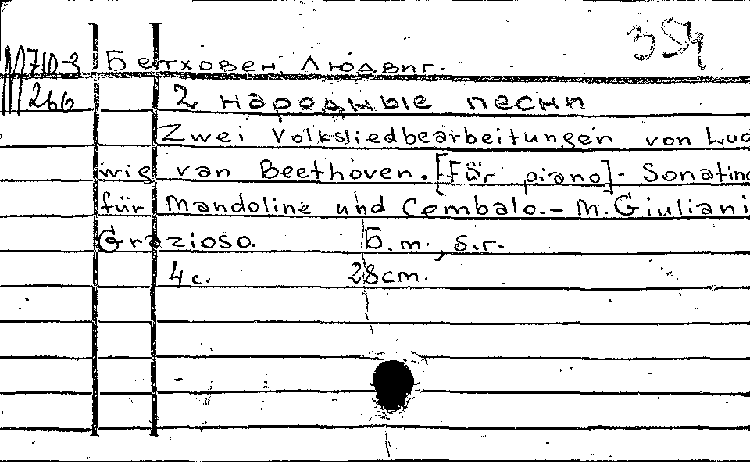 354
М710-3 Бетховен, Людвиг.
266 2 народные песни
Zwei Volksliedbearbeitungen von Lud
wig van Beethoven. [Für piano] - Sonatina
für Mandoline und Cembalo. - M. Giuliani
Grazioso. Б. m., s. r.
4 с. 28 cm.